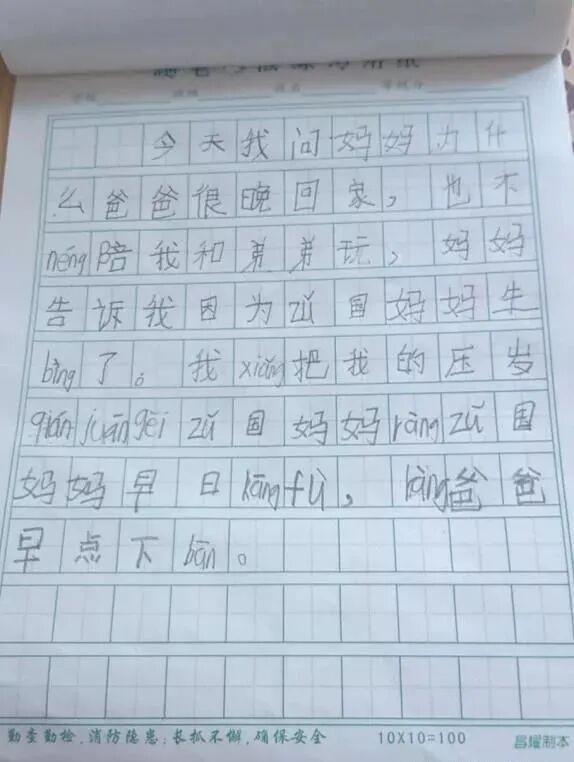 今天我问妈妈为什
么爸爸很晚回家，也不
néng陪我和弟弟玩，妈妈
告诉我因为zǔ国妈妈生
bìng了。我xiǎng把我的压岁
qián juān gěi zǔ国妈妈ràng zǔ国
妈妈早日kāng fù，ràng爸爸
早点下bān。
勤查勤检，消防隐患；长抓不懈，确保安全 10X10=100 昌耀制本